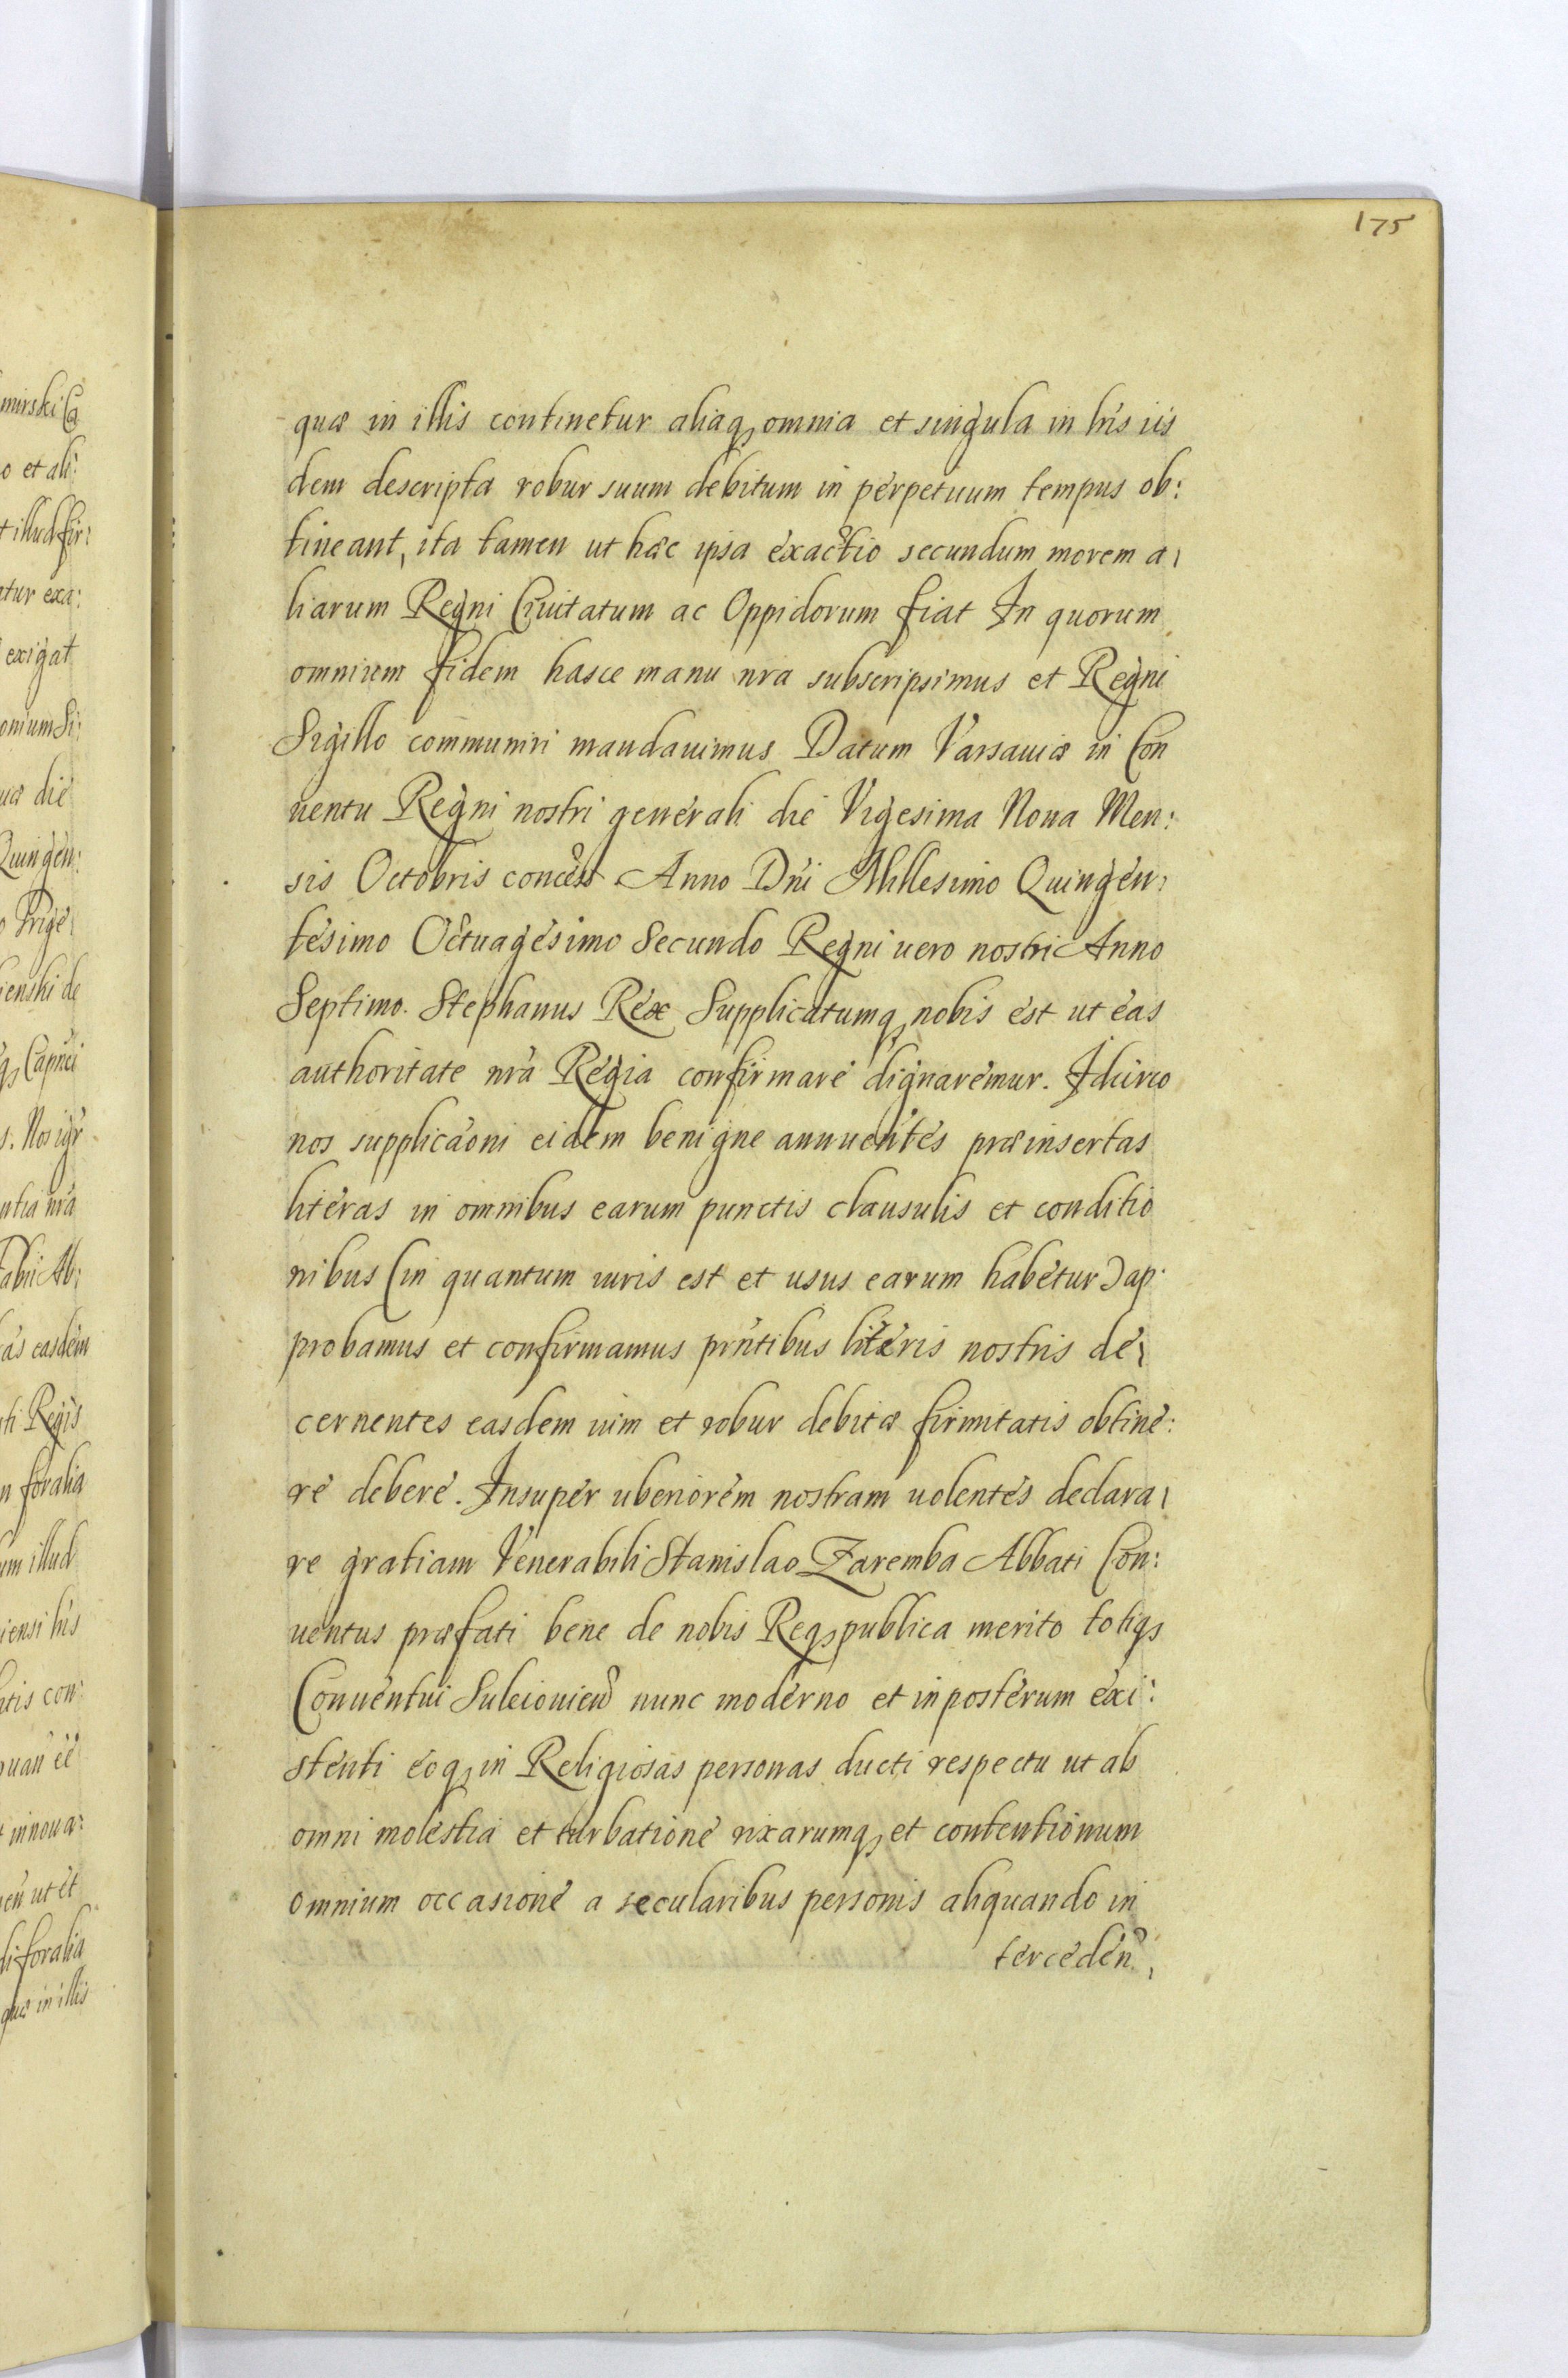 175
quæ in illis continetur aliaq, omnia et singula in his iis
dem descripta robur suum debitum in perpetuum tempus ob:
tineant, ita tamen ut hæc ipsa exactio secundum morem a
liarum Regni Ciuitatum ac Oppidorum fiat In quorum
omnium fidem hasce manu nra subscripsimus et Regni
Sigillo communiri mandauimus Datum Varsauiæ in Con
uentu Regni nostri generali die Vigesima Nona Men:
sis Octobris Anno Dni Millesimo Quingen:
tesimo Octuagesimo Secundo Regni uero nostri Anno
Septimo. Stephanus Rex Supplicatumq, nobis est ut eas
authoritate nra Regia confirmare dignaremur. Idcirco
nos supplicaoni eidem benigne annuentes præinsertas
literas in omnibus earum punctis clausulis et conditio
nibus (in quantum iuris est et usus earum habetur) ap
probamus et confirmamus prntibus literis nostris de
cernentes easdem uim et robur debitæ firmitatis obtine:
re debere. Insuper uberiorem nostram uolentes declara
re gratiam Venerabili Stanislao Zaremba Abbati Con:
uentus præfati bene de nobis Req, publica merito totiq,
Conuentui Suleiouien nunc moderno et inposterum exi:
stenti eoq, in Religiosas personas ducti respectu ut ab
omni molestia et turbatione rixarumq, et contentionum
omnium occasione a secularibus personis aliquando in
terceden
mirski Ca
o et ali:
t illud fir:
tur exa:
exigat
onium Si:
uæ die
Quingen:
o Trige
ienski de
q, Capnei
s. Nos igr
ntia nra
Ab:
as easdem
ti Regis
n foralia
um illud
iensi his
tis con
quan ee
t innoua:
en ut et
di foralia
quæ in illis